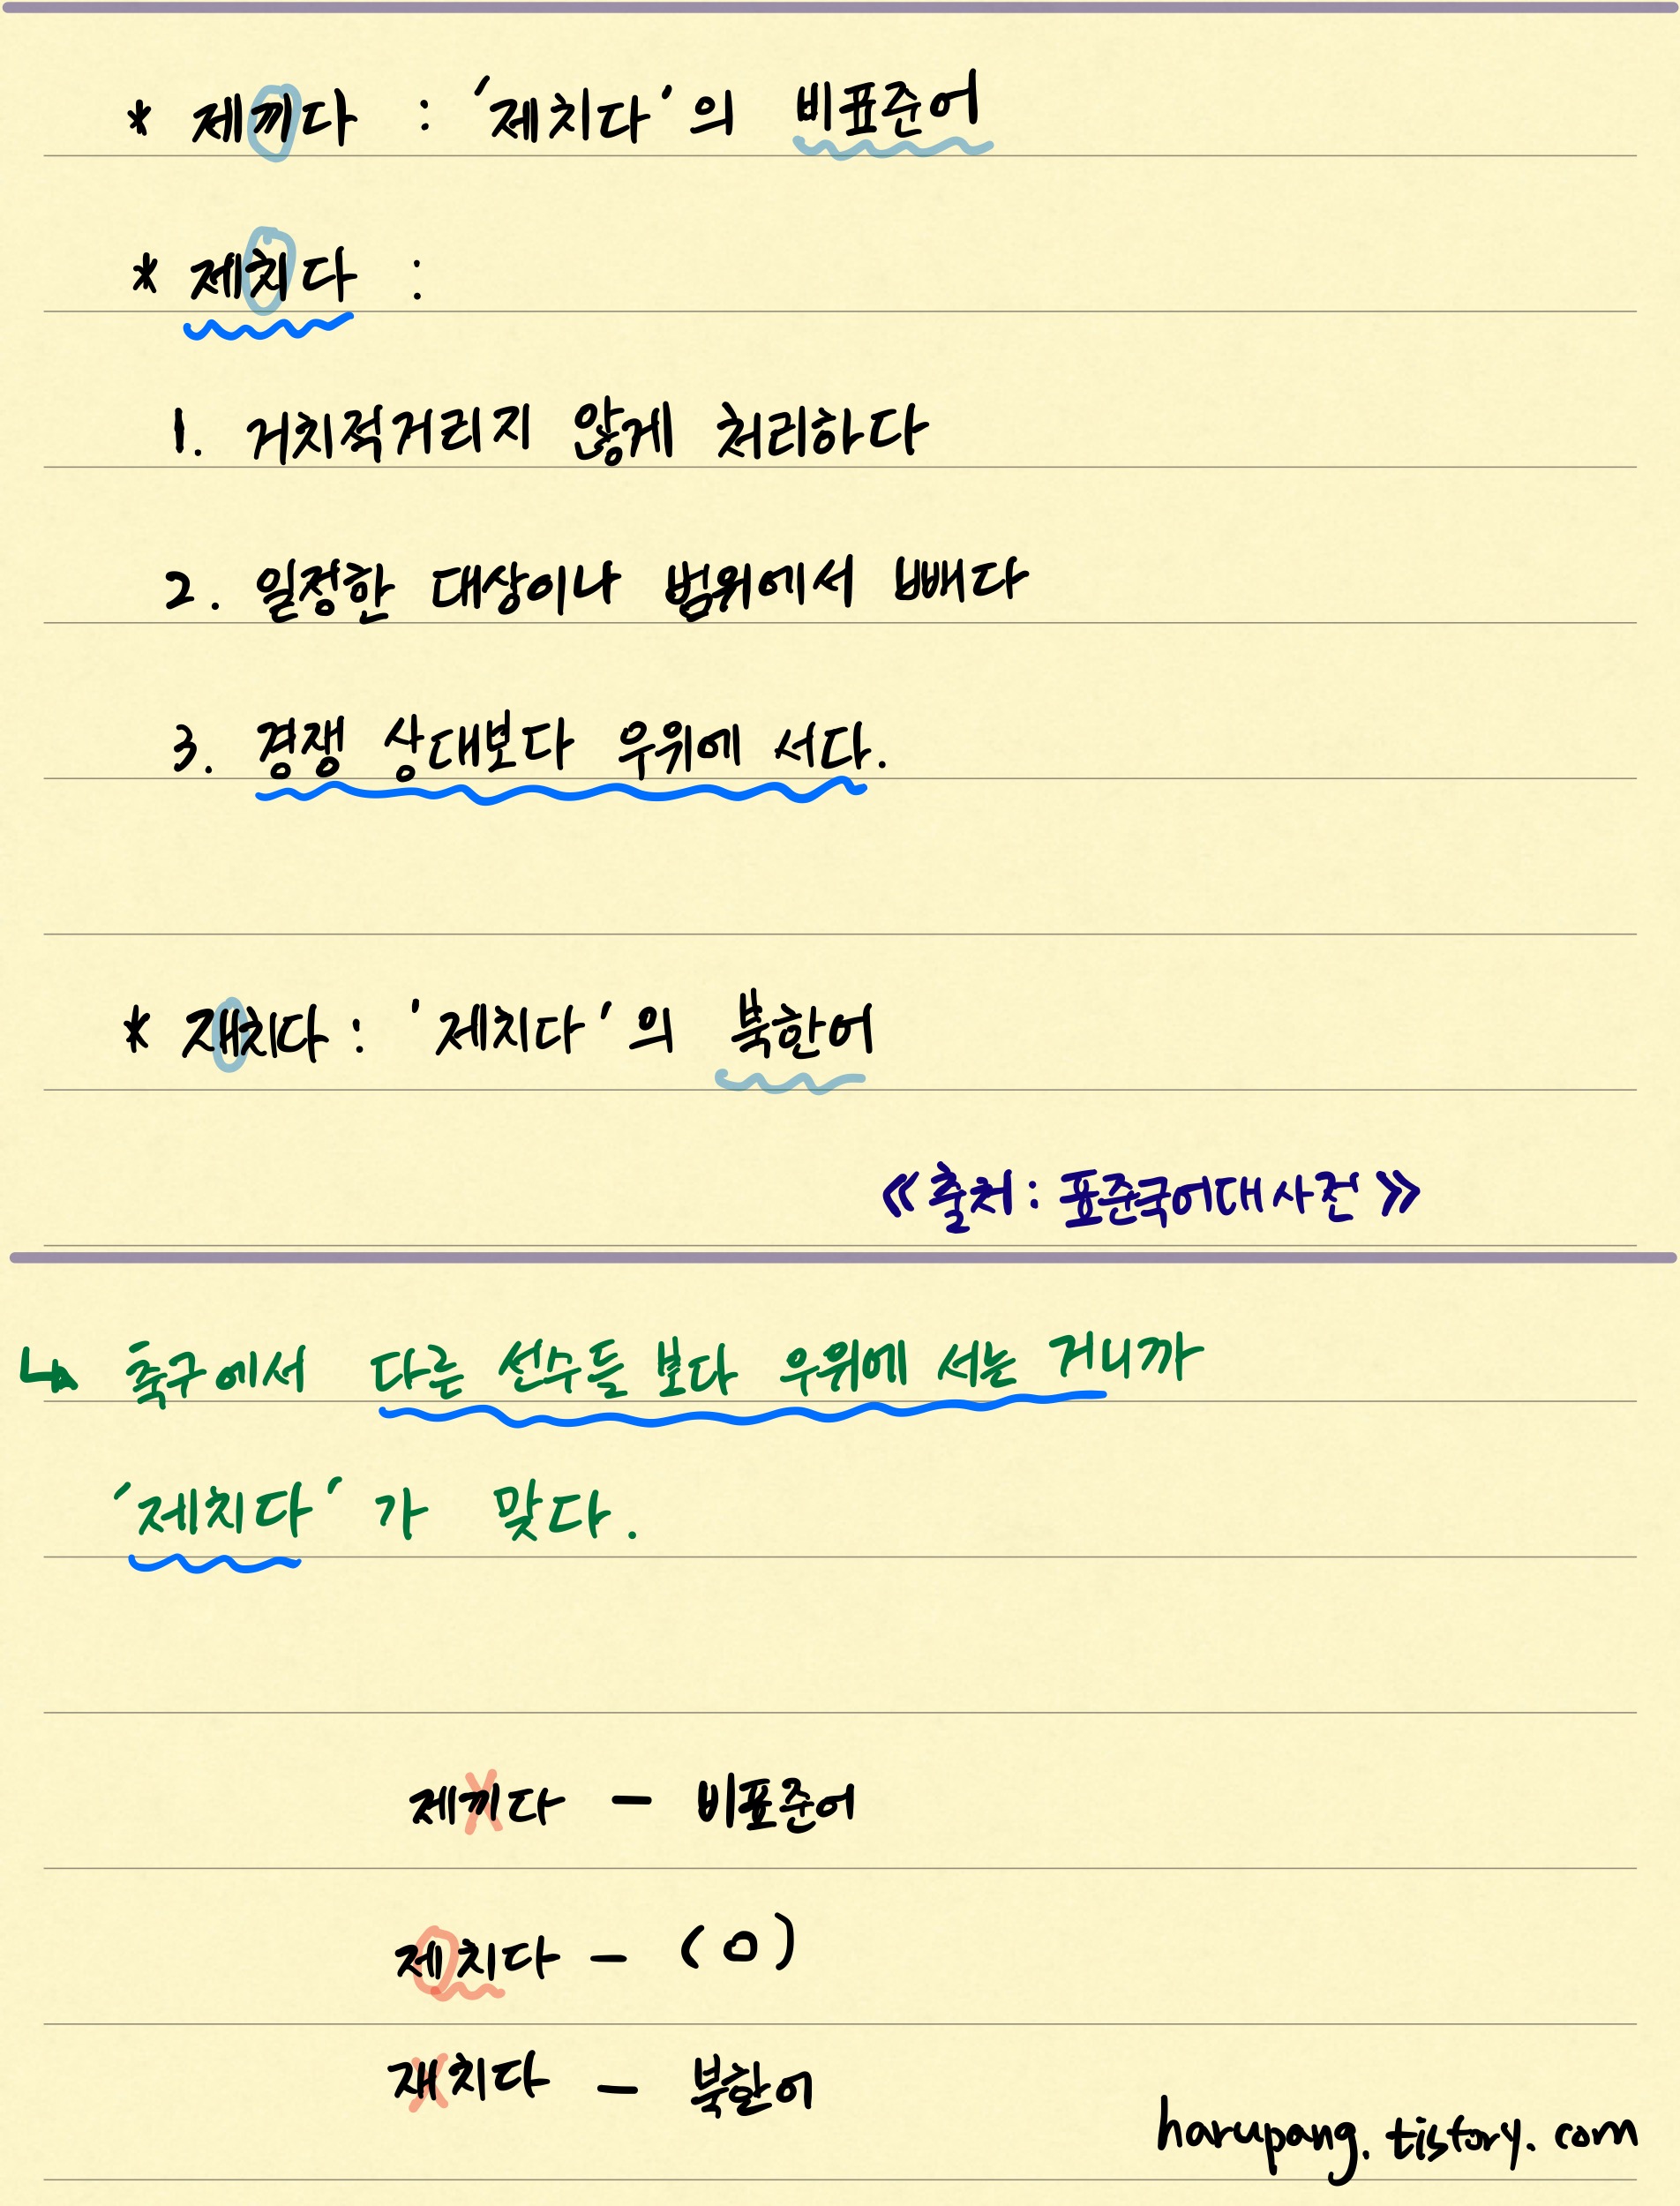 * 제끼다 : '제치다'의 비표준어
* 제치다 :
1. 거치적거리지 않게 처리하다
2. 일정한 대상이나 범위에서 빼다
3. 경쟁 상대보다 우위에 서다.
* 재치다 : '제치다'의 북한어
《출처 : 표준국어대사전》
↳ 축구에서 다른 선수들 보다 우위에 서는 거니까
'제치다'가 맞다.
제끼다 - 비표준어
제치다 - (O)
재치다 - 북한어
harupang.tistory.com